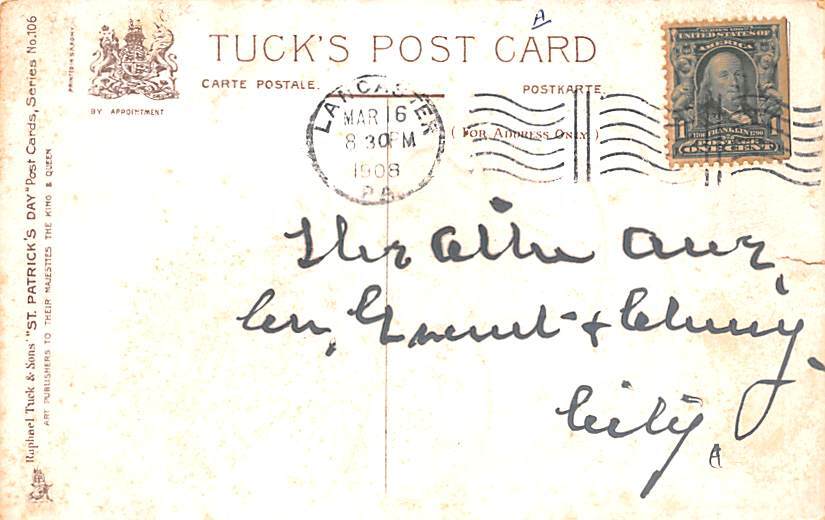 A
TUCK'S POST CARD
CARTE POSTALE.
POSTKARTE.
(FOR ADDRESS ONLY.)
BY APPOINTMENT
PRINTED IN SAXONY
Raphael Tuck & Sons' "ST. PATRICK'S DAY" Post Cards, Series No. 106
ART PUBLISHERS TO THEIR MAJESTIES THE KING & QUEEN
LANCASTER
MAR 16
8 30 PM
1908
PA.
SERIES 1902
UNITED STATES OF
AMERICA
1706 FRANKLIN 1790
POSTAGE
1 ONE CENT 1
Cor. Grant & Cherry
City
A